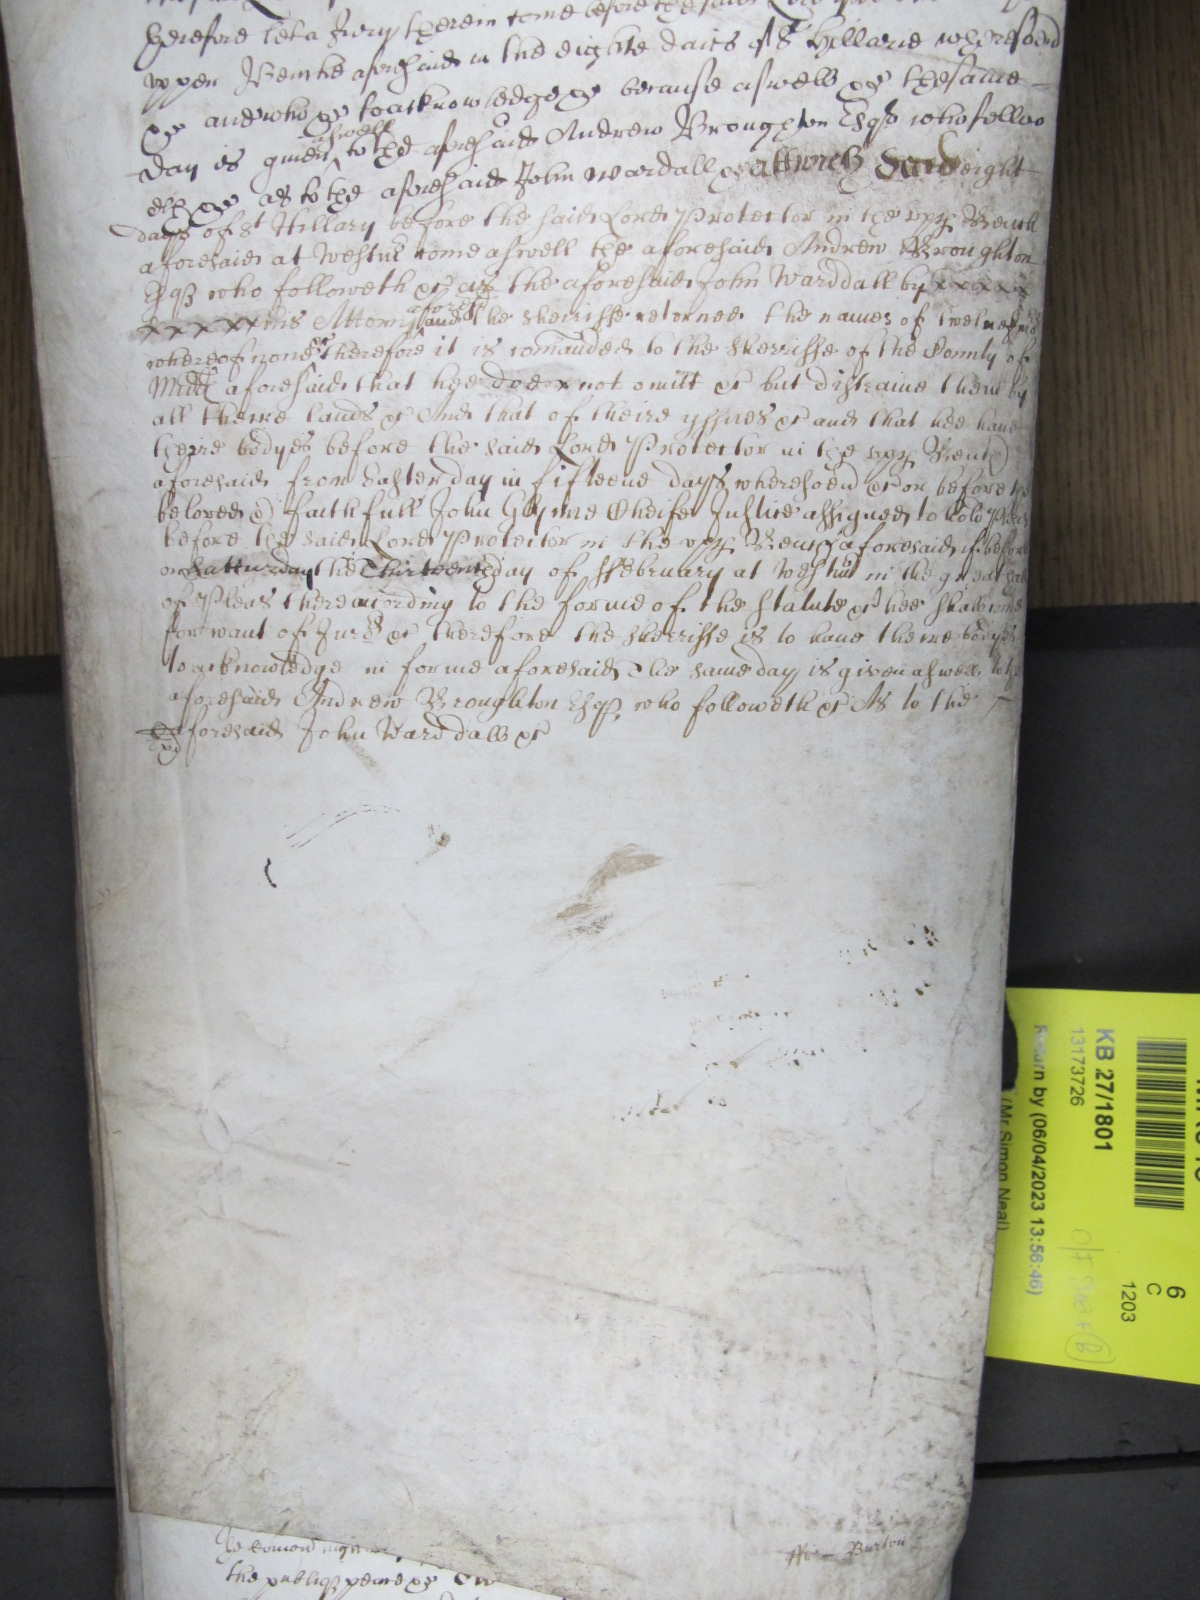 therefore let a Jury therein come before the said Lord
upper Benche aforesaid in the eighte daies of St Hillarie whersoed
&c and who &c to acknowledge &c because aswell &c the same
day is given aswell to the aforesaid Andrew Broughton Esqr who follow
eth &c as to the aforesaid John Wardall &c att which said eight
dayes of St Hillary before the said Lord Protector in the upp Bench
aforesaid at Westm come aswell the aforesaid Andrew Broughton
Esqr who followeth &c as the aforesaid John Warddall by xxxxx
xxxxxx his Attorny aforesd and the Sherriffe retorned the names of twelve
whereof none &c therefore it is comanded to the Sherriffe of the County of
Midd aforesaid that hee doe x not omitt &c but distraine them by
all theire lands &c And that of theire yssues &c and that hee have
theire bodyes before the said Lord Protector in the upp Bench
aforesaid from Easter day in fifteene dayes wheresoed &c or before the
beloved & faithfull John Glynne Cheife Justice assigned to hold Pleas
before the said Lord Protector in the upp Bench aforesaid if before
on Satturday the Thirteenth day of February at Westm in the great hall
of Pleas there according to the forme of the Statute &c hee shall come
for want of Jurs &c therefore the Sherriffe is to have theire bodyes
to acknowledge in forme aforesaid The same day is given aswell to the
aforesaid Andrew Broughton Esqr who followeth &c As to the
aforesaid John Warddall &c
Burton
the publiq peace &c
KB 27/1801
13173726
Return by (06/04/2023 13:56:46)
(Mr Simon Neal)
6
C
1203